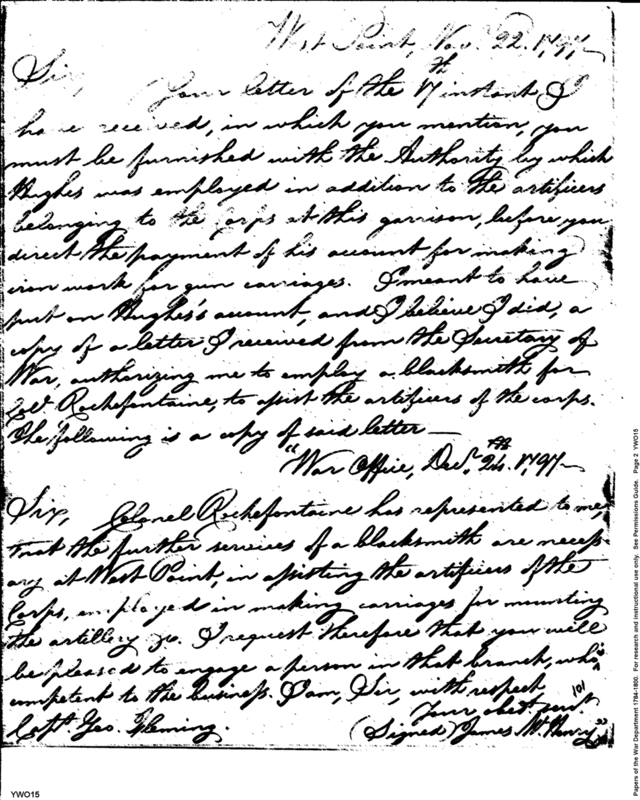 West Point, Nov.r 22. 1797
Sir,
Your letter of the 17th instant I
have received, in which you mention, you
must be furnished with the Authority by which
Hughes was employed in addition to the artificers
belonging to the corps at this garrison, before you
direct the payment of his account for making
iron work for gun carriages. I meant to have
put on Hughes's account, and I believe I did, a
copy of a letter I received from the Secretary of
War, authorizing me to employ a blacksmith for
Col. Rochefontaine, to assist the artificers of the corps.
The following is a copy of said letter —
"War Office, 24.th 1797 —
Sir, Colonel Rochefontaine has represented to me,
that the further services of a blacksmith are necess-
ary at West Point, in assisting the artificers of the
Corps, employed in making carriages for mounting
the artillery &c. I request therefore that you will
be pleased to engage a person in that branch, who is
competent to the business. I am, Sir, with respect,
Your obed.t serv.t
101
Capt. Geo. Fleming. (Signed) James McHenry"
YWO15
Papers of the War Department 1784-1800. For research and instructional use only. See Permissions Guide. Page 2 YWO15